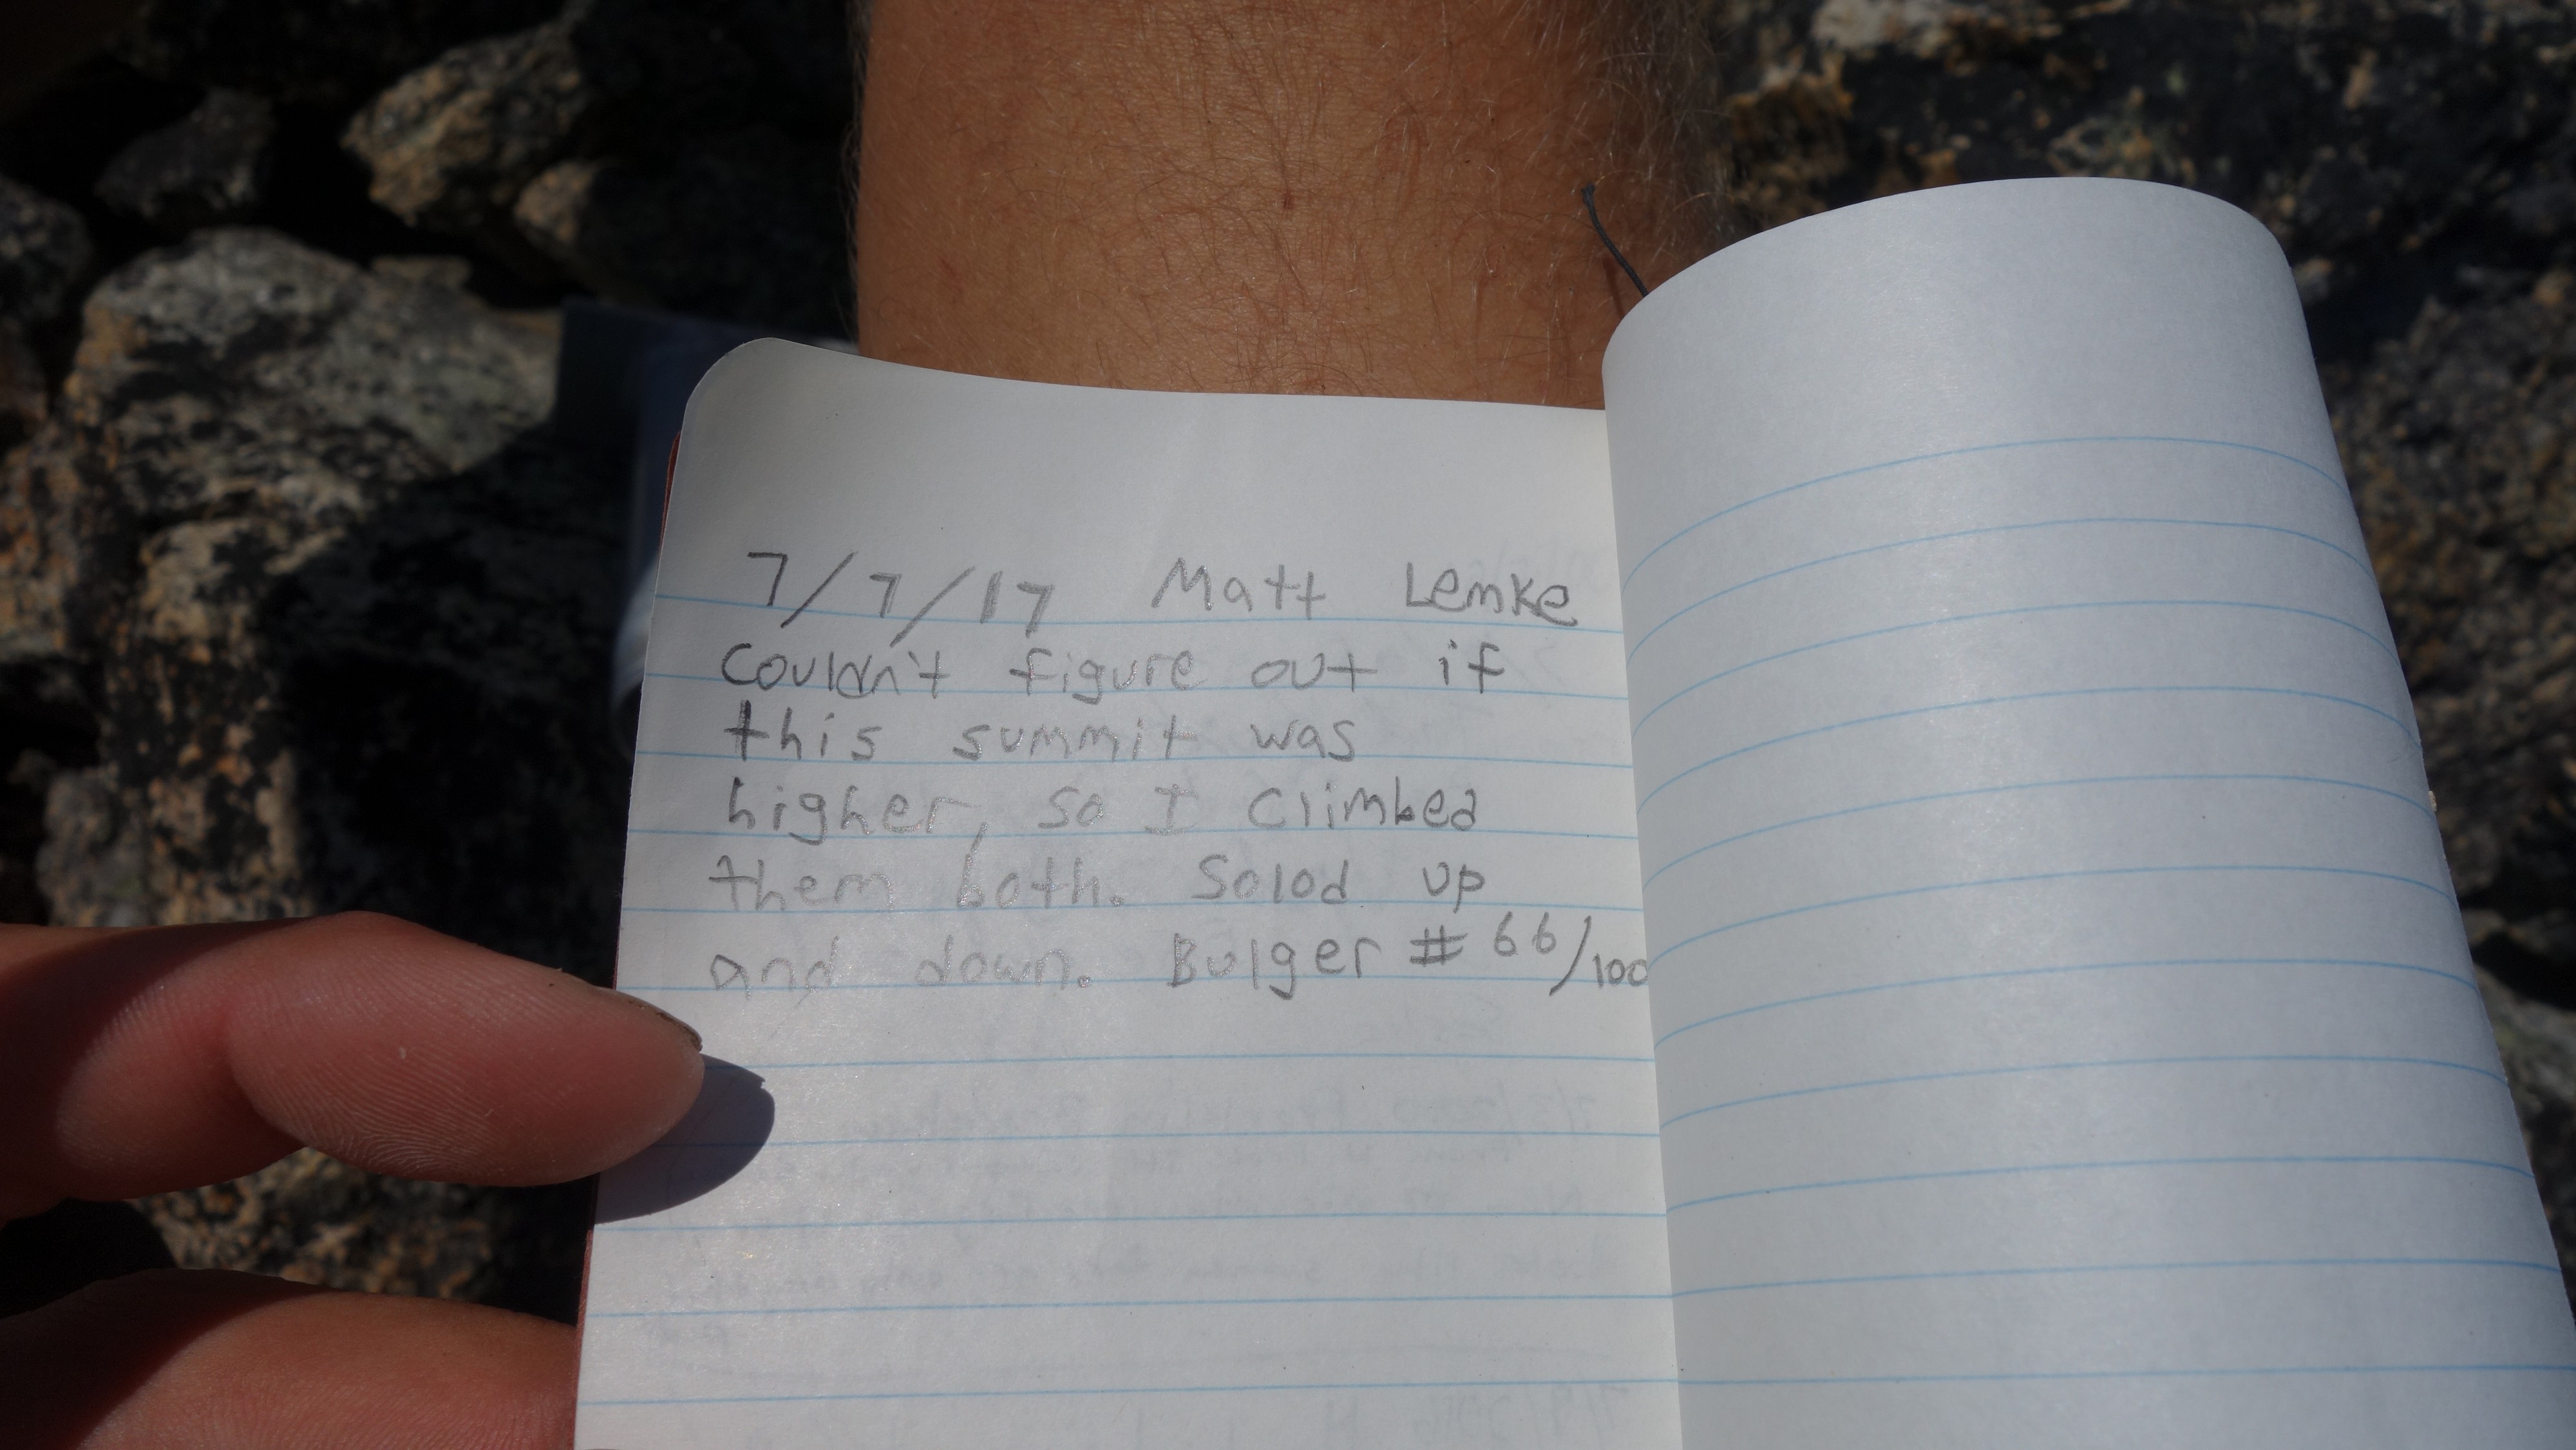 7/7/17 Matt Lemke
Couldn't figure out if
this summit was
higher, so I climbed
them both. Solod up
and down. Bulger # 66/100